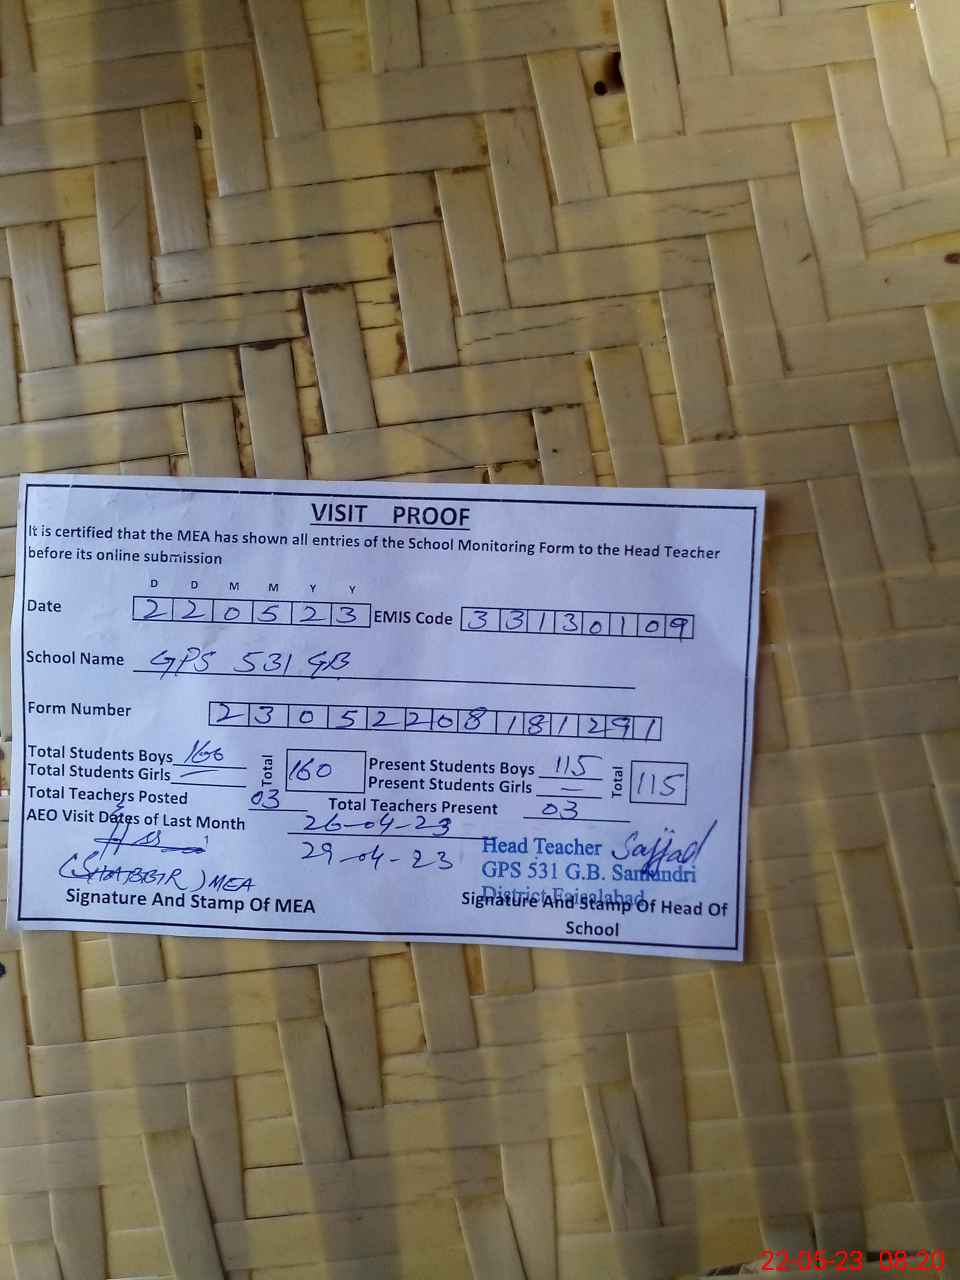 VISIT PROOF
It is certified that the MEA has shown all entries of the School Monitoring Form to the Head Teacher
before its online submission
D D M M Y Y
Date 2 2 0 5 2 3 EMIS Code 3 3 1 3 0 1 0 9
School Name GPS 531 GB
Form Number 2 3 0 5 2 2 0 8 1 8 1 2 9 1
Total Students Boys 160 Total 160 Present Students Boys 115 Total 115
Total Students Girls — Present Students Girls —
Total Teachers Posted 03 Total Teachers Present 03
AEO Visit Dates of Last Month 26-04-23
29-04-23
Head Teacher Sajjad
GPS 531 G.B. Samundri
District Faisalabad
(SHABBIR) MEA
Signature And Stamp Of MEA
Signature And Stamp Of Head Of
School
22-05-23 08:20